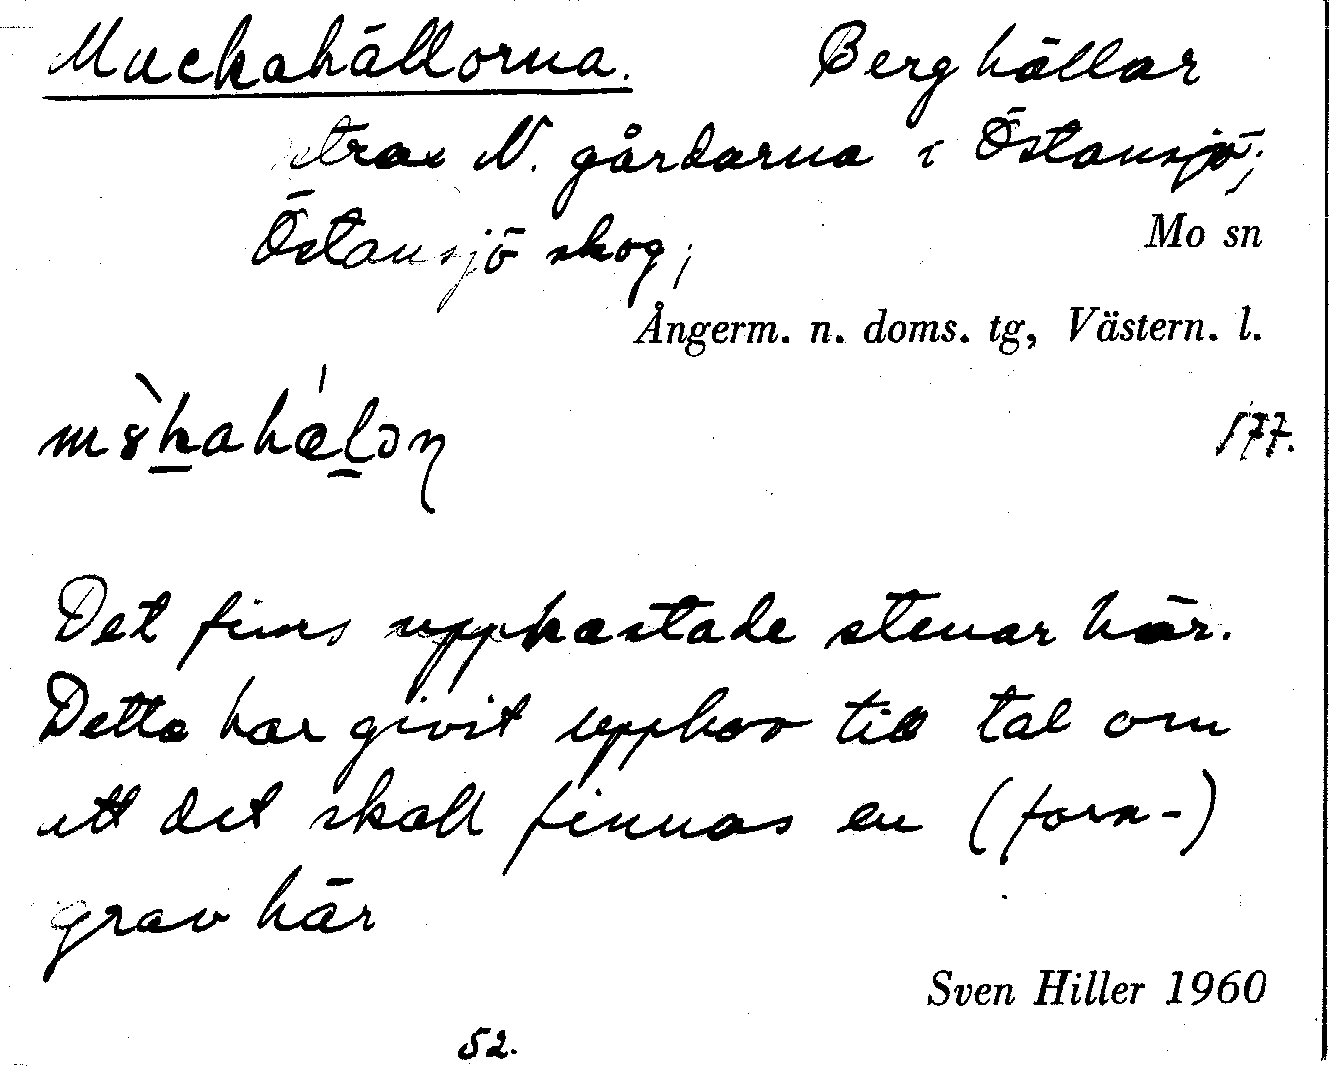 Muckahällorna. Berghällar
strax N. gårdarna i Östansjö;
Östansjö skog;
Mo sn
Ångerm. n. doms. tg, Västern. l.
177.
Det finns uppkastade stenar här.
Detta har givit upphov till tal om
att det skall finnas en (forn-)
grav här
Sven Hiller 1960
52.